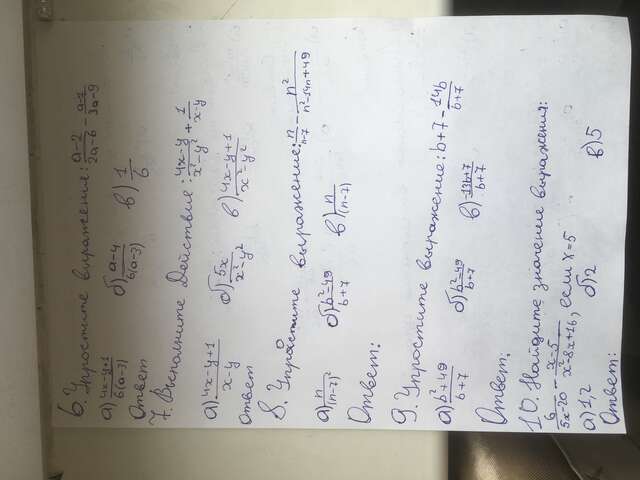 6. Упростите выражения: \frac{a-2}{2a-6} - \frac{a-2}{3a-9}
а) \frac{4x-y+1}{6(a-3)} б) \frac{a-4}{6(a-3)} в) \frac{1}{6}
Ответ
7. Выполните Действие: \frac{4x-y}{x²-y²} + \frac{1}{x-y}
а) \frac{4x-y+1}{x-y} б) \frac{5x}{x²-y²} в) \frac{4x-y+1}{x²-y²}
Ответ
8. Упростите выражение: \frac{n}{n-7} - \frac{n²}{n²-14n+49}
а) \frac{n}{(n-7)²} б) \frac{b²-49}{b+7} в) \frac{n}{(n-7)}
Ответ:
9. Упростите выражение: b+7 - \frac{14b}{b+7}
а) \frac{b²+49}{b+7} б) \frac{b²-49}{b+7} в) \frac{-13b+7}{b+7}
Ответ:
10. Найдите значение выражения:
\frac{6}{5x-20} - \frac{x-5}{x²-8x+16}, если x=5
а) 1,2 б) 2 в) 5
Ответ: